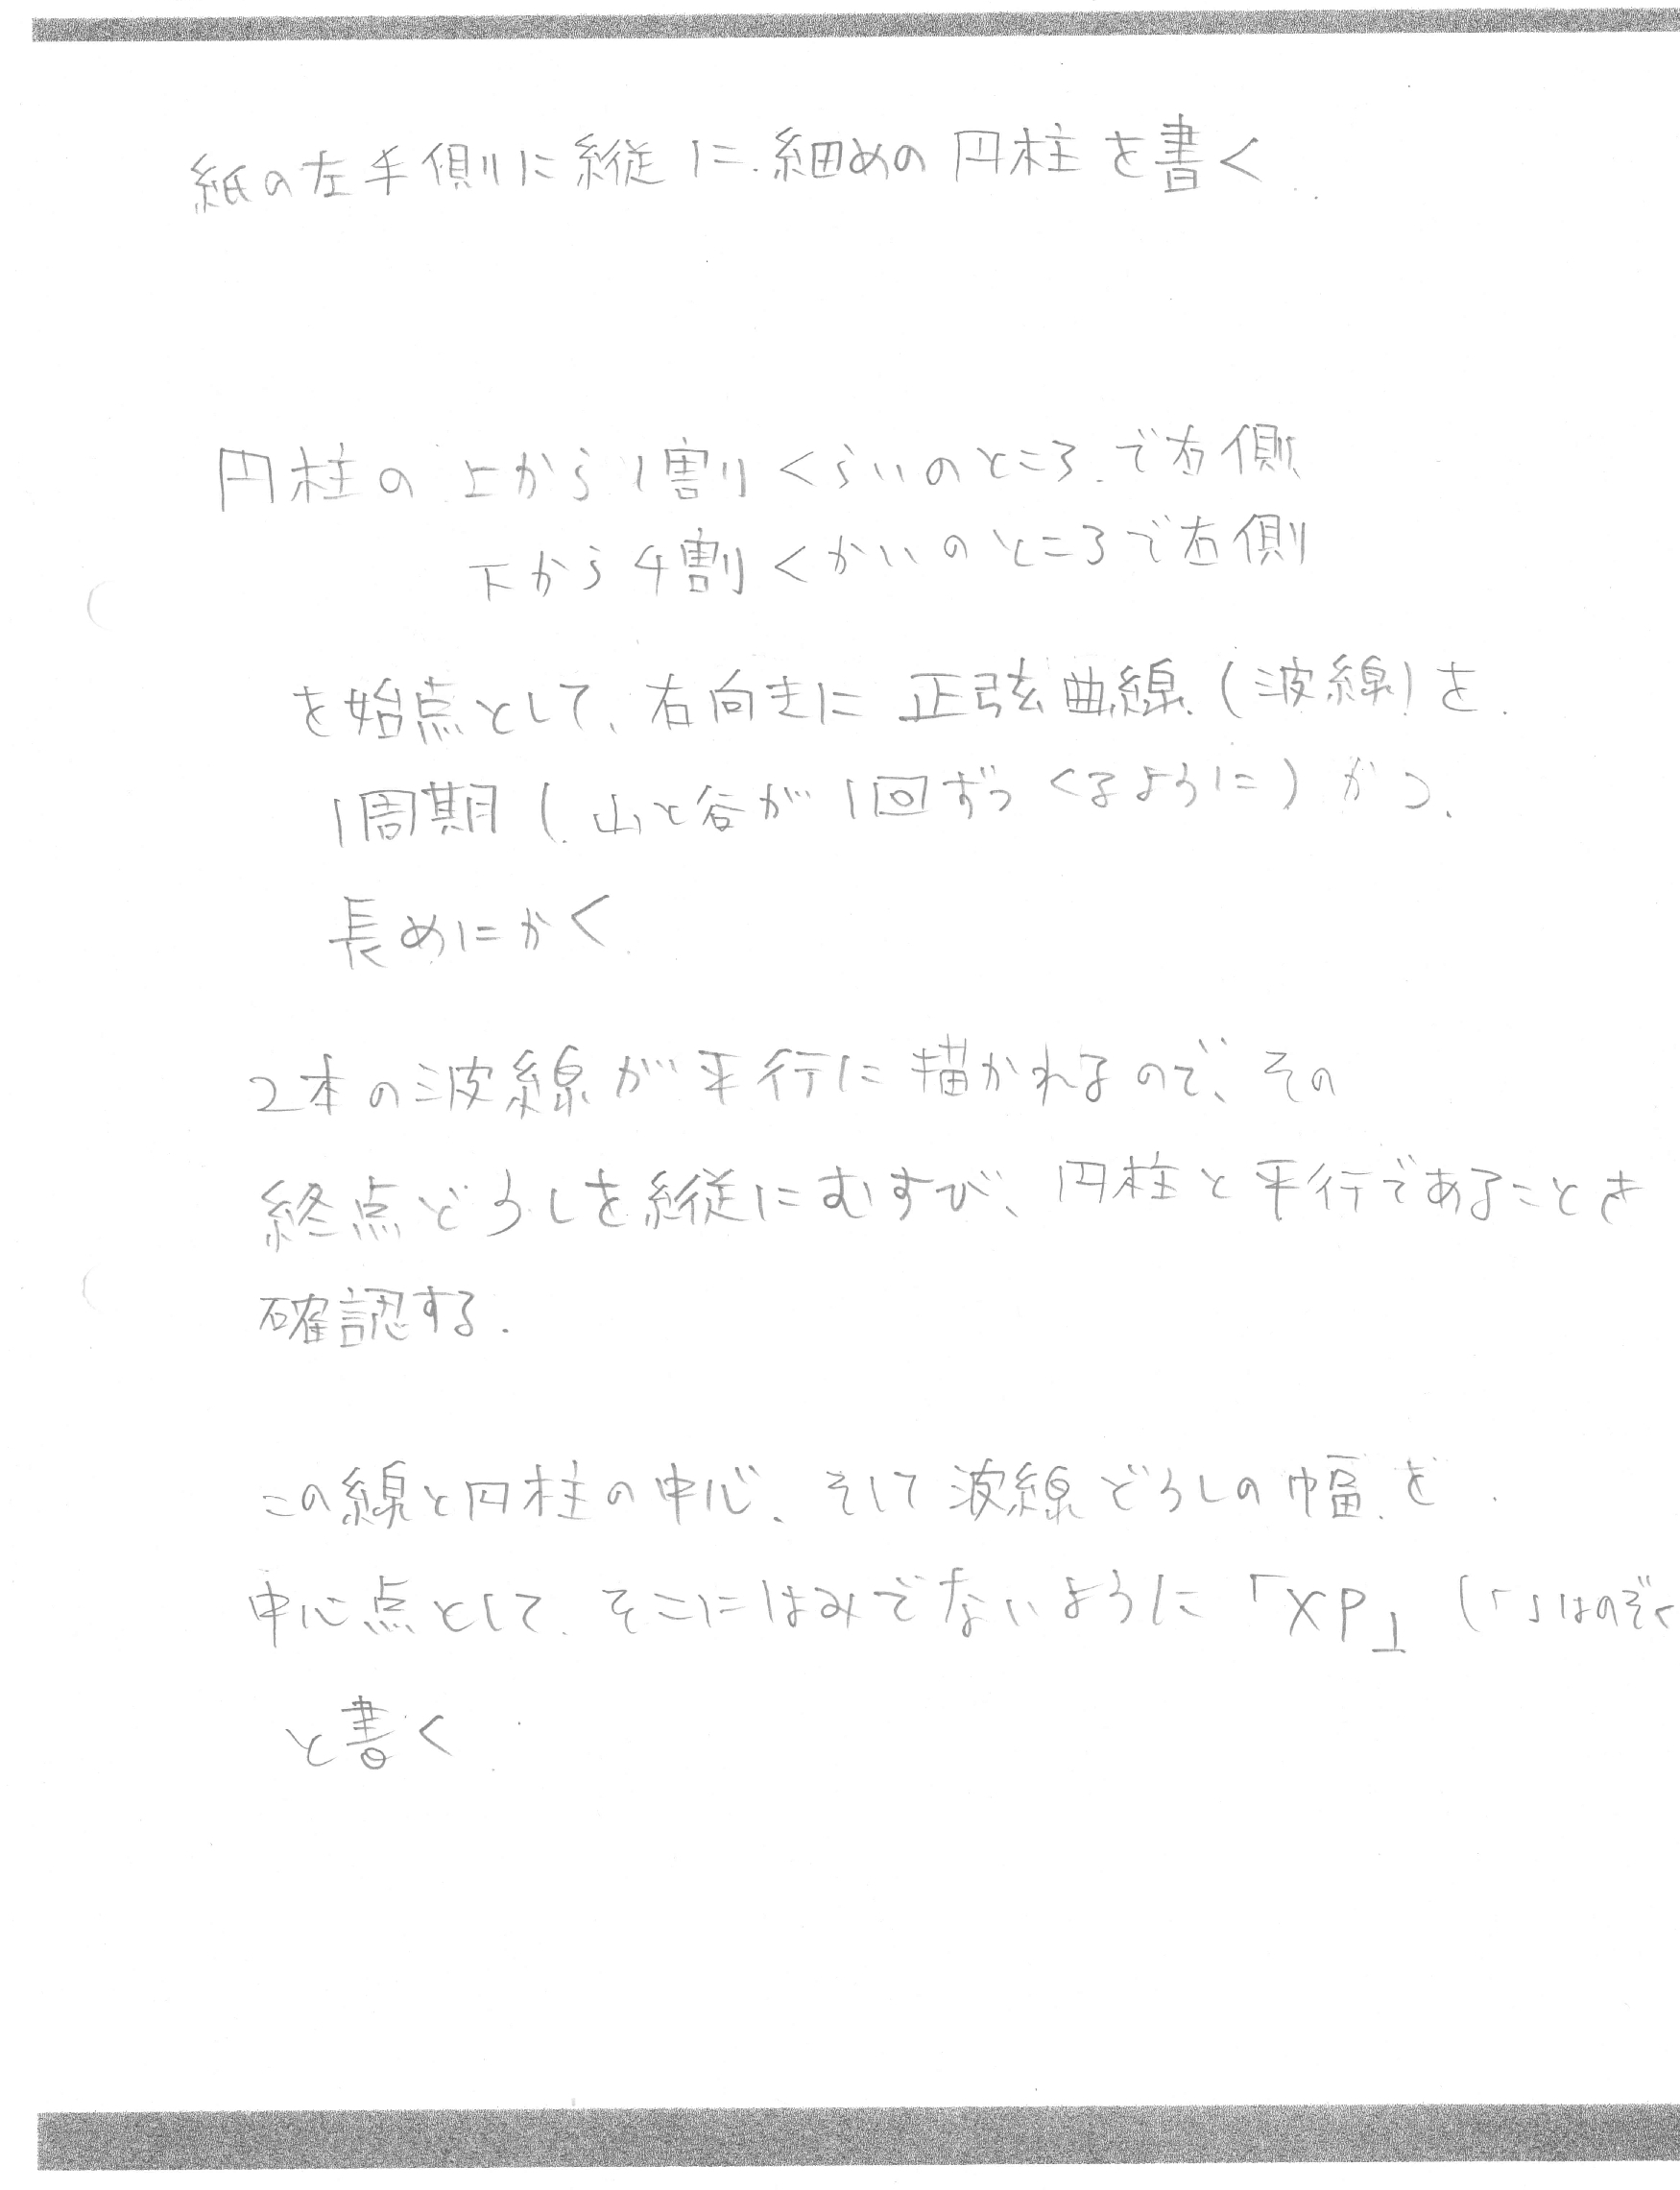 紙の左手側に縦に細めの円柱を書く
円柱の上から1割くらいのところで右側
下から4割くかいのところで右側
を始点として、右向きに正弦曲線(波線)を
1周期(山と谷が1回ずつくるように)かつ、
長めにかく
2本の波線が平行に描かれるので、その
終点どうしを縦にむすび、円柱と平行であることを
確認する.
この線と円柱の中心、そして波線どうしの幅を
中心点として、そこにはみでないように「XP」(「」はのぞく
と書く